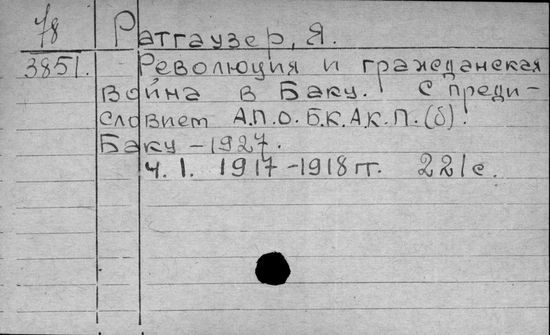 78 Ратгаузер, Я.
3851. Революция и гражданская
война в Баку. С преди-
словием А.П.О. Б.К.А.К.П.(б).
Баку - 1927.
Ч. 1. 1917-1918 гг. 221 с.